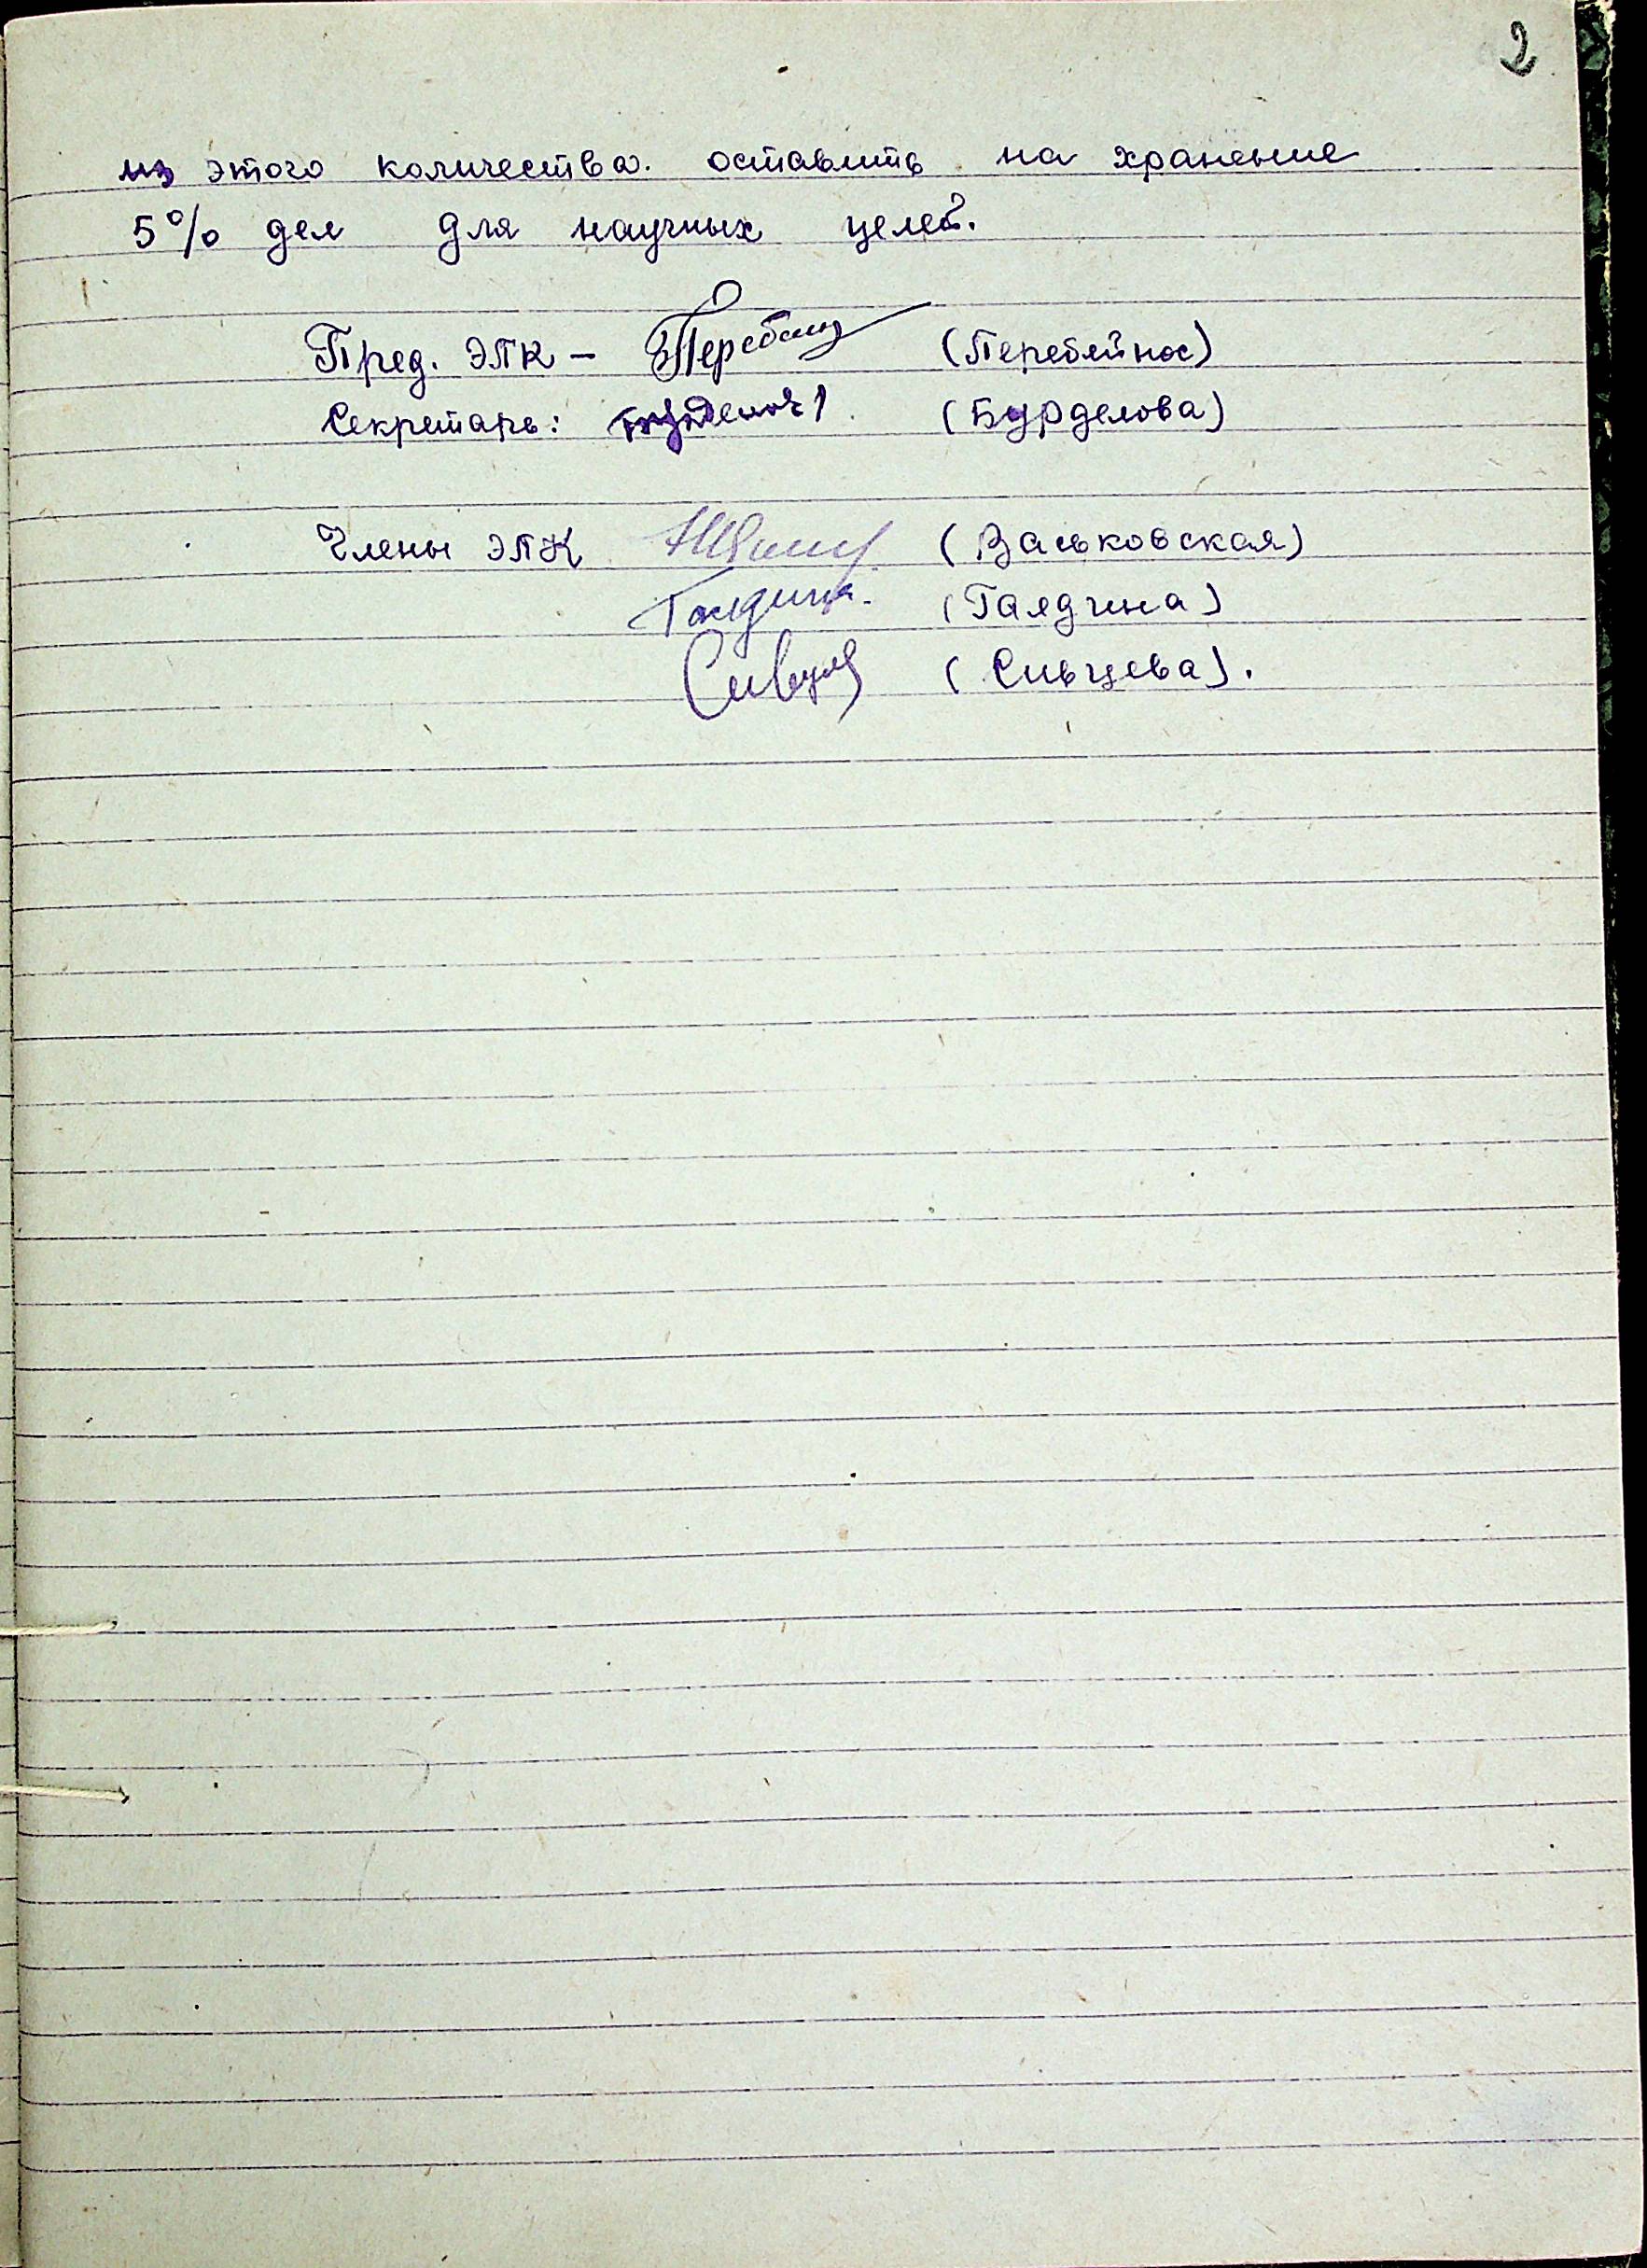 2
из этого количества. оставить на хранение
5% дел для научных целей.
Пред. ЭПК – (Перебейнос)
Секретарь: (Бурделова)
Члены ЭПК (Васьковская)
(Галдчина)
(Сивцева).